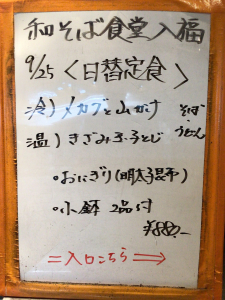 和そば食堂 入福
9/25 <日替定食>
冷) メカブと山かけ そば
温) きざみ玉子とじ うどん
・おにぎり(明太子昆布)
・小鉢 2品付
¥880.-
=入口こちら⇒